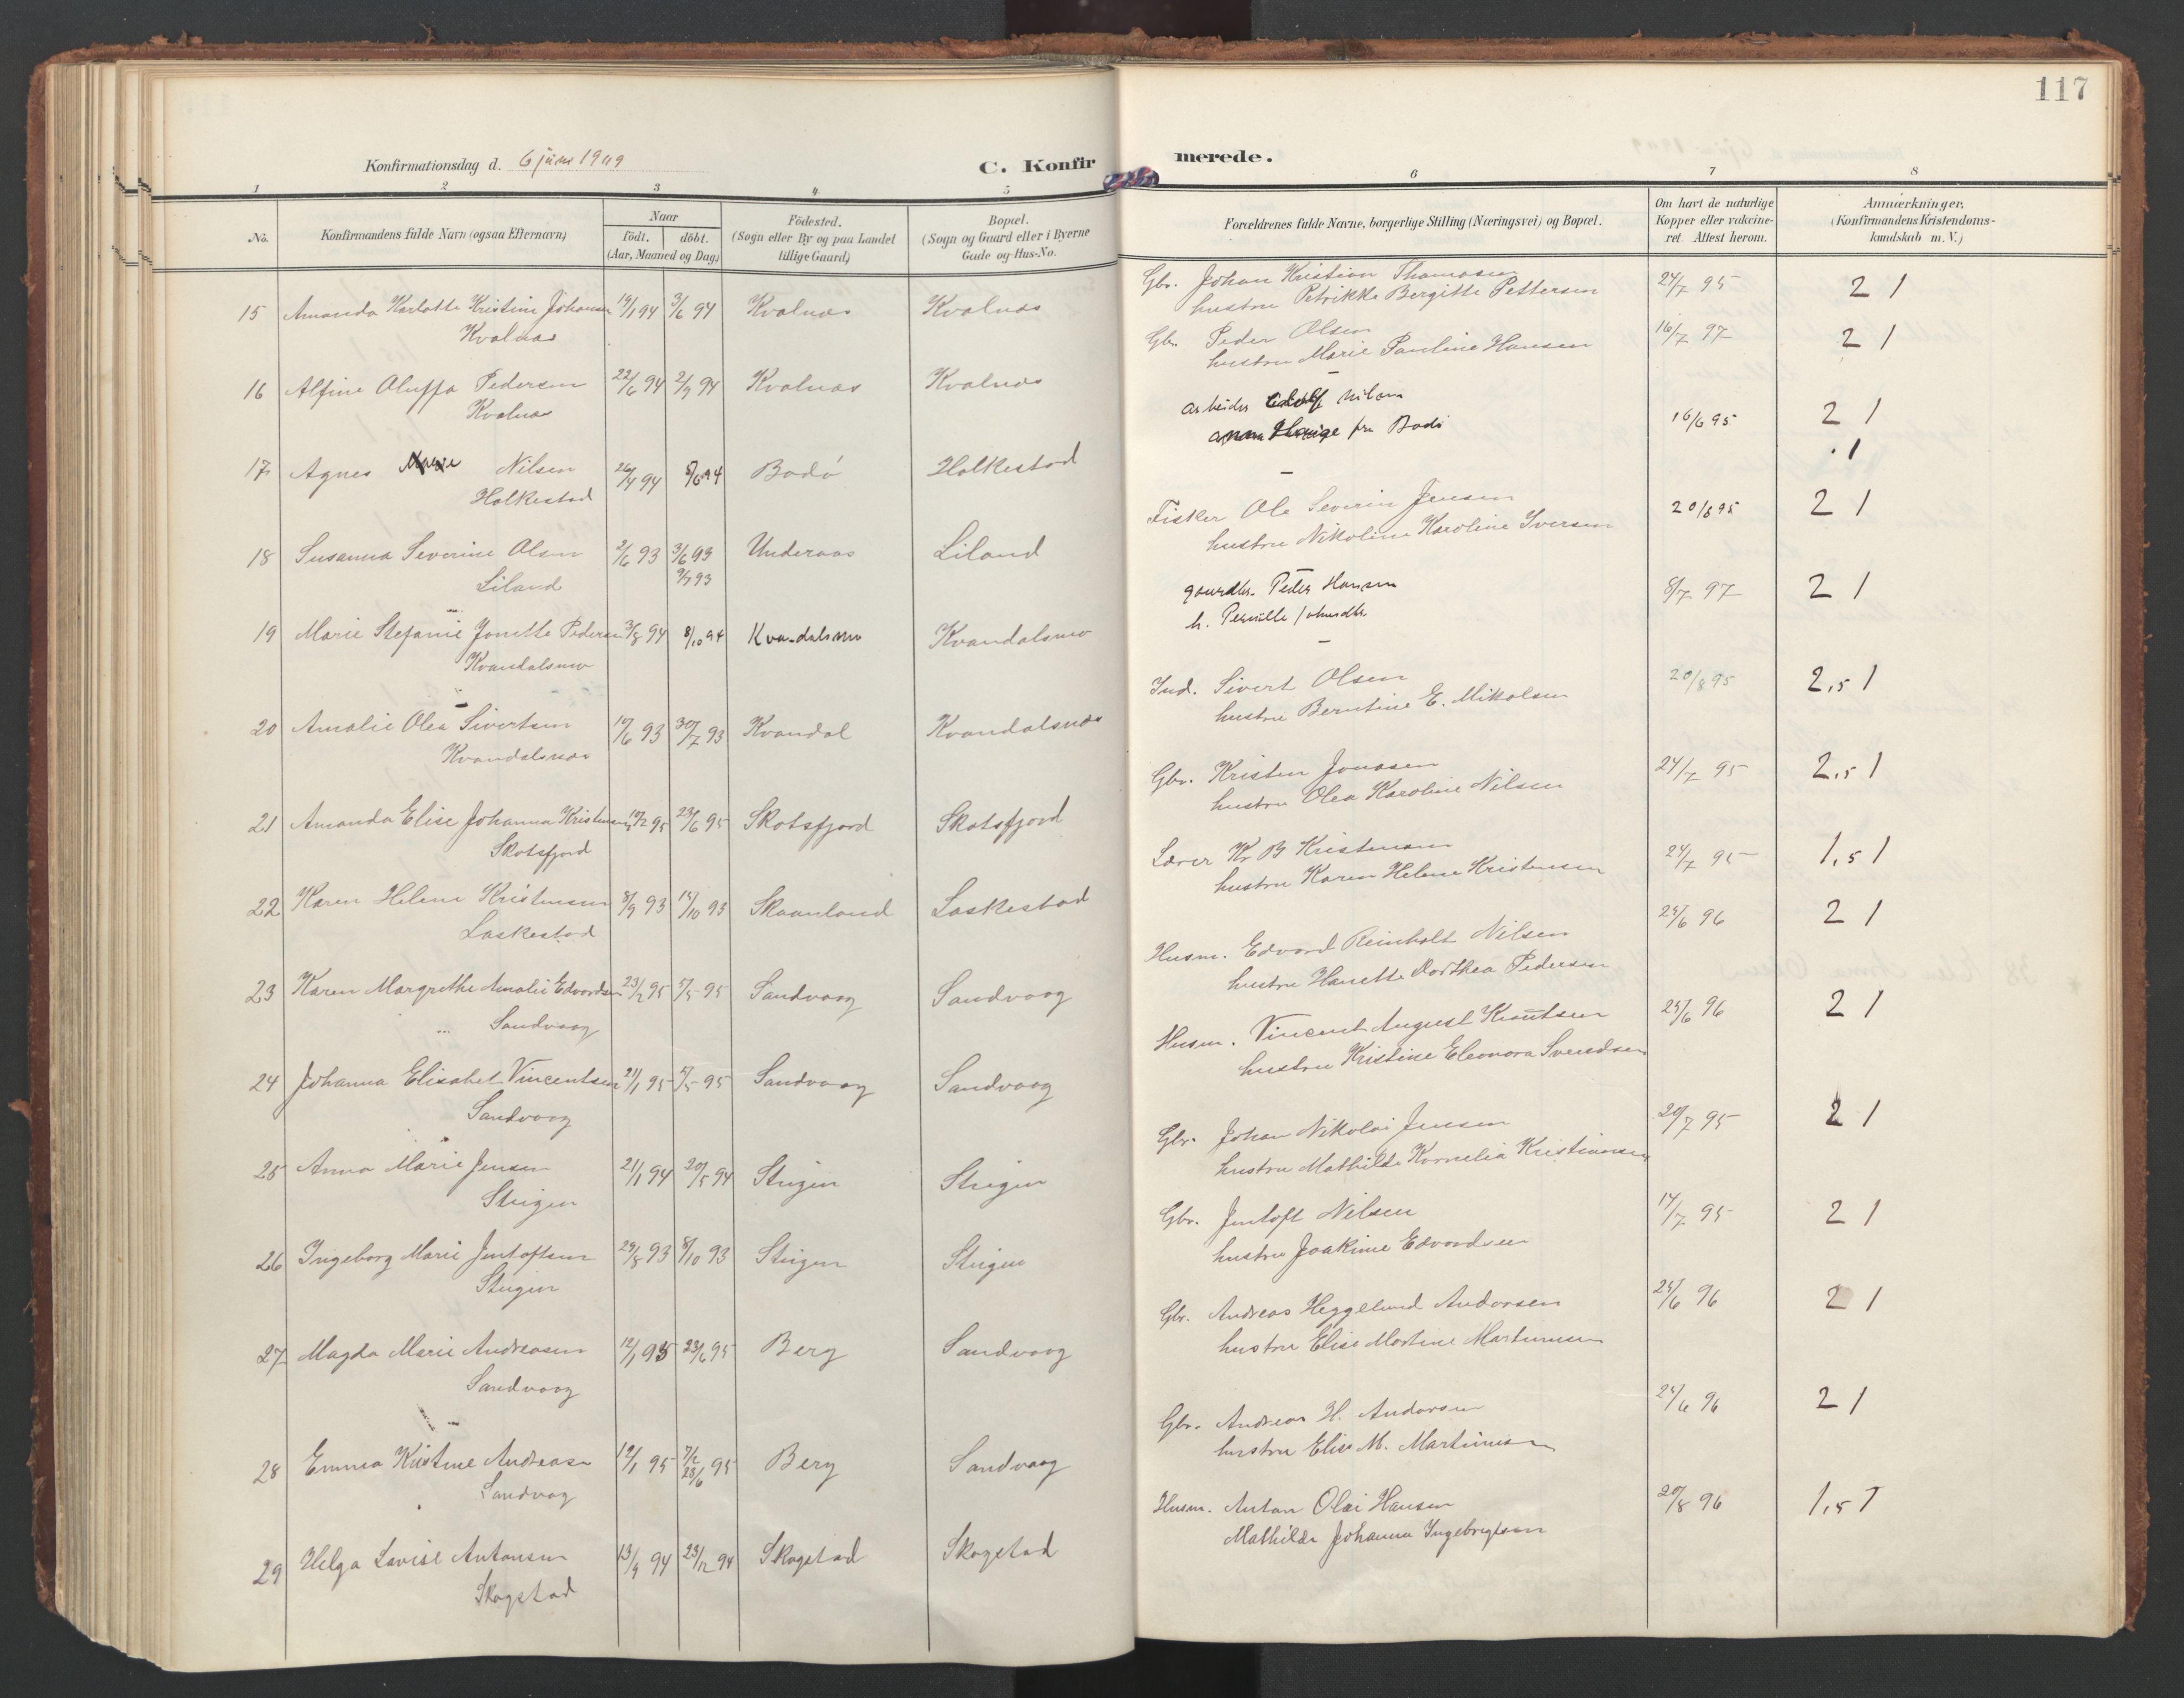 117
Konfirmationsdag d. 6 juni 1909
C. Konfirmerede.
1 2 3 4 5 6 7 8
No.
Konfirmandens fulde Navn (ogsaa Efternavn)
Naar
födt. döbt.
(Aar, Maaned og Dag)
Födested.
(Sogn eller By og paa Landet
tillige Gaard)
Bopæl.
(Sogn og Gaard eller i Byerne
Gade og Hus-No.
Forældrenes fulde Navne, borgerlige Stilling (Næringsvei) og Bopæl.
Om havt de naturlige
Kopper eller vakcine-
ret. Attest herom.
Anmærkninger.
(Konfirmandens Kristendoms-
kundskab m. V.)
15 Amanda Karlotte Kristine Johansen 19/1 94 3/6 94 Kvalnæs Kvalnæs
Kvalnæs
Gbr. Johan Kristian Thomasen 24/7 95 2 1
hustru Petrikke Bergitte Pettersen
16 Alfine Aluffa Pedersen 22/6 94 2/9 94 Kvalnæs Kvalnæs
Kvalnæs
Gbr. Peder Olsen 16/7 97 2 1
hustru Marie Pauline Hansen
17 Agnes Marie Nilsen 26/4 94 5/6 94 Bodø Holkestad
Holkestad
arbeider Nilsen 16/6 95 2 1
Anna fra Bodø 1
18 Susanna Severine Olsen 2/6 93 3/6 93 Underaas Liland
Liland 9/7 93
Fisker Ole Severin Jensen 20/8 95 2 1
hustru Nikoline Karoline Iversen
19 Marie Stefanie Jonette Pedersen 3/8 94 8/10 94 Kvandalsnæs Kvandalsnæs
Kvandalsnæs
gaardbr. Peder Hansen 8/7 97 2 1
h. Pernille
20 Amalie Olea Sivertsen 10/6 93 30/7 93 Kvandal Kvandalsnæs
Kvandalsnæs
Ind. Sivert Olsen 20/8 95 2,5 1
hustru Berntine E. Mikalsen
21 Amanda Elise Johanna Kristensen 10/2 95 23/6 95 Skotsfjord Skotsfjord
Skotsfjord
Gbr. Kristen Jonasen 24/7 95 2,5 1
hustru Olea Karoline Nilsen
22 Karen Helene Kristensen 8/9 93 15/10 93 Skaanland Laskestad
Laskestad
Lærer Kr B Kristensen 24/7 95 1,5 1
hustru Karen Helene Kristensen
23 Karen Margrethe Amalie Edvardsen 23/2 95 5/5 95 Sandvaag Sandvaag
Sandvaag
Husm. Edvard Reinholt Nilsen 25/6 96 2 1
hustru Hanette Dorthea Pedersen
24 Johanna Elisabet Vincentsen 21/1 95 5/5 95 Sandvaag Sandvaag
Sandvaag
Husm. Vincent August Knutsen 25/6 96 2 1
hustru Kristine Eleonora Svendsen
25 Anna Marie Jensen 21/1 94 20/5 94 Steigen Steigen
Steigen
Gbr. Johan Nikolai Jensen 20/7 95 2 1
hustru Mathilde Kornelia Kristiansen
26 Ingeborg Marie Jentoftsen 29/8 93 8/10 93 Steigen Steigen
Steigen
Gbr. Jentoft Nilsen 14/7 95 2 1
hustru Joakime Edvardsen
27 Magda Marie Andreasen 12/1 95 23/6 95 Berg Sandvaag
Sandvaag
Gbr. Andreas Heggelund Andorsen 25/6 96 2 1
hustru Elise Martine Martinusen
28 Emma Kristine Andreasen 12/1 95 7/2 23/6 95 Berg Sandvaag
Sandvaag
Gbr. Andreas H. Andorsen 25/6 96 2 1
hustru Elise M. Martinusen
29 Helga Lovise Antonsen 13/9 94 23/12 94 Skogstad Skogstad
Skogstad
Husm. Anton Olai Hansen 20/8 96 1,5 1
Mathilde Johanna Ingebrigtsen